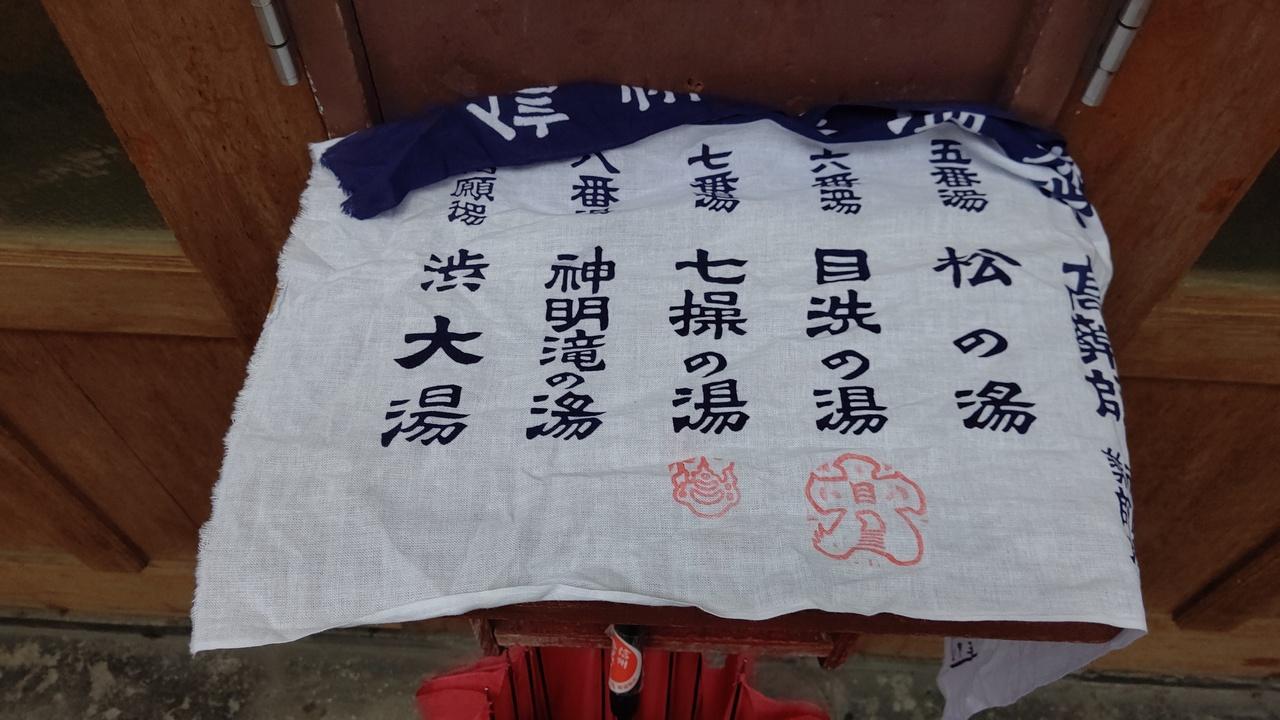 五番湯
松の湯
六番湯
目洗の湯
七番湯
七操の湯
八番湯
神明滝の湯
願湯
渋大湯
高薬師
信州